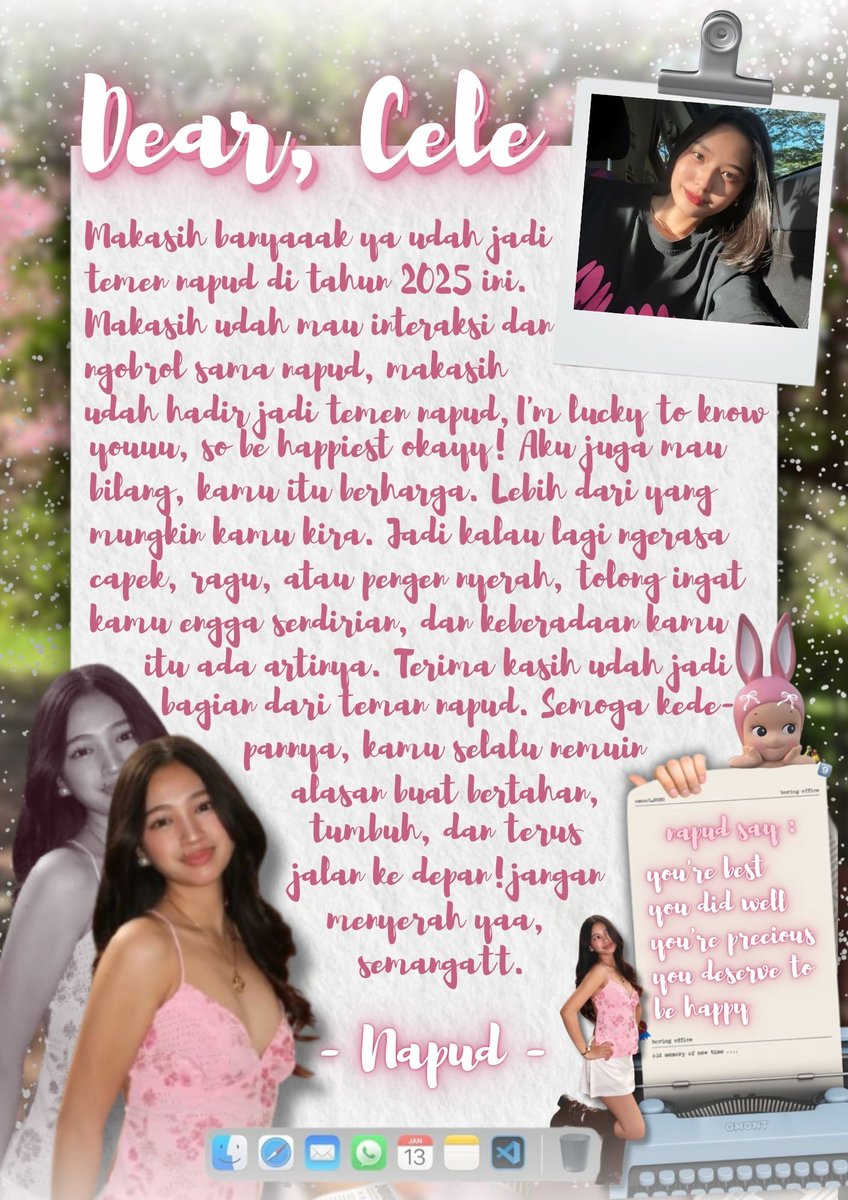 Dear, Cele
Makasih banyaaak ya udah jadi
temen napud di tahun 2025 ini.
Makasih udah mau interaksi dan
ngobrol sama napud, makasih
udah hadir jadi temen napud, I'm lucky to know
youuu, so be happiest okayy! Aku juga mau
bilang, kamu itu berharga. Lebih dari yang
mungkin kamu kira. Jadi kalau lagi ngerasa
capek, ragu, atau pengen nyerah, tolong ingat
kamu engga sendirian, dan keberadaan kamu
itu ada artinya. Terima kasih udah jadi
bagian dari teman napud. Semoga kede-
pannya, kamu selalu nemuin
alasan buat bertahan,
tumbuh, dan terus
jalan ke depan!jangan
menyerah yaa,
semangatt.
- Napud -
omont,2020
boring office
9
napud say :
you're best
you did well
you're precious
you deserve to
be happy
boring office
old memory of new time ....
OMONT
JAN
13